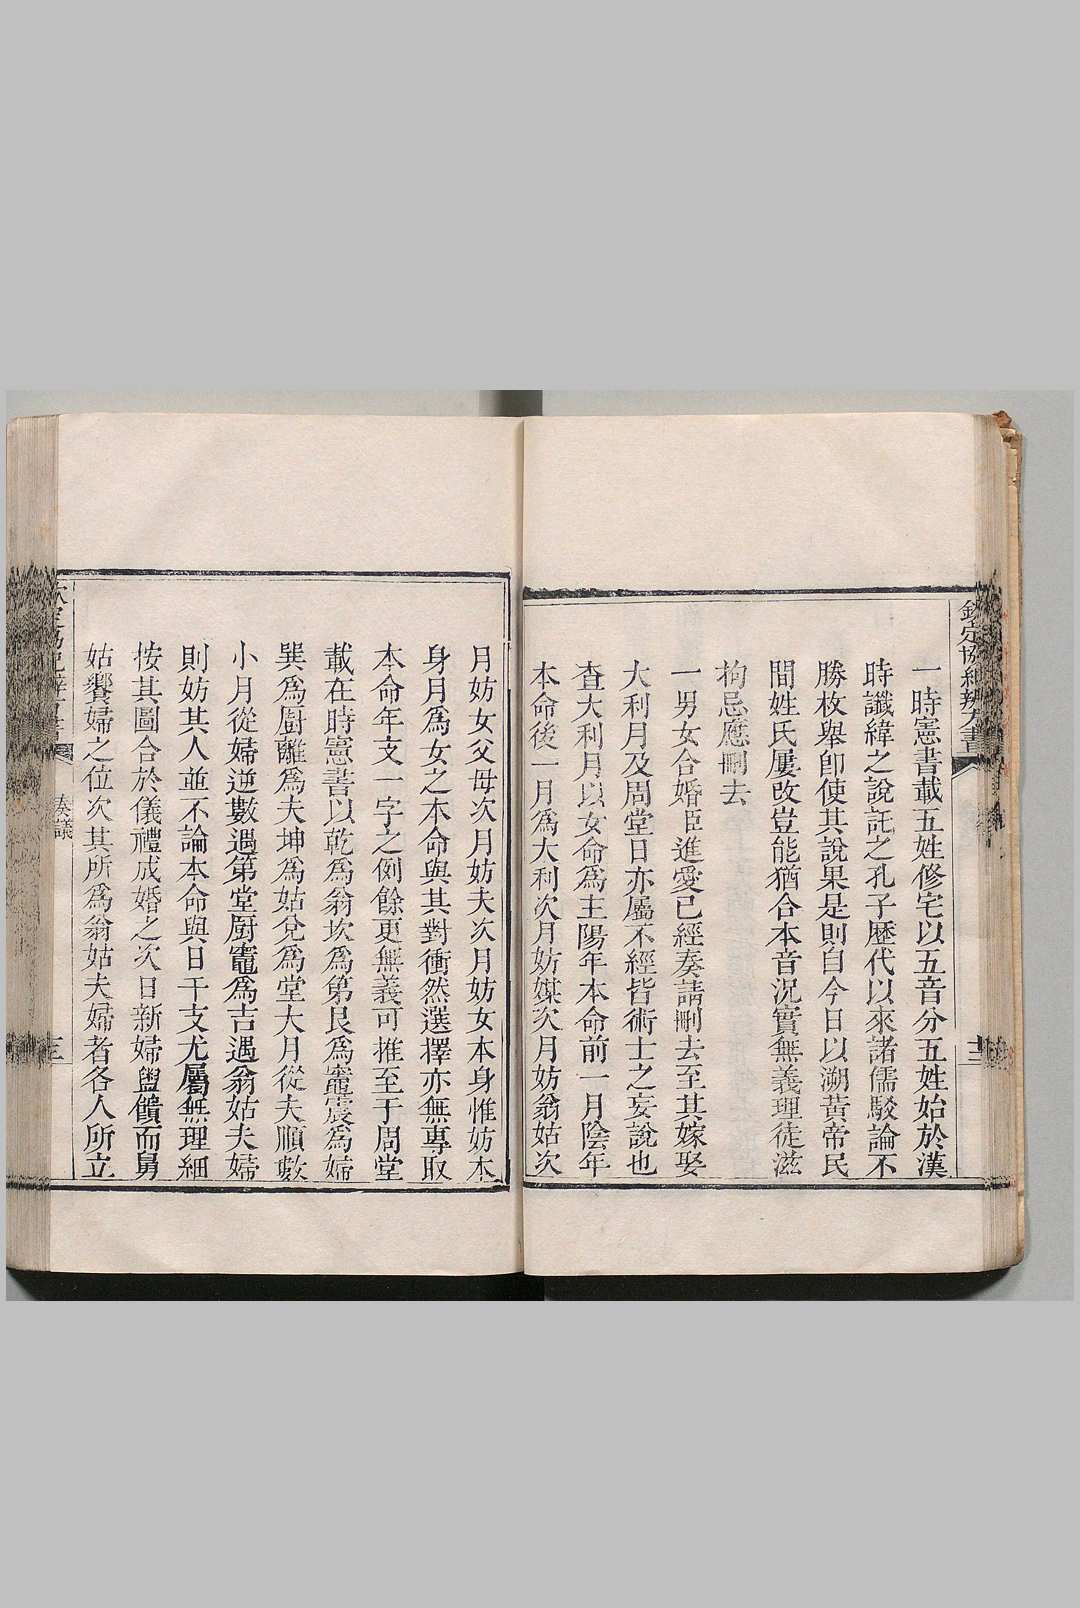 欽定協紀辨方書
十二
一時憲書載五姓修宅以五音分五姓始於漢
時讖緯之說託之孔子歷代以來諸儒駁論不
勝枚舉卽使其說果是則自今日以溯黃帝民
間姓氏屢改豈能猶合本音況實無義理徒滋
拘忌應刪去
一男女合婚臣進愛已經奏請刪去至其嫁娶
大利月及周堂日亦屬不經皆術士之妄說也
查大利月以女命爲主陽年本命前一月陰年
本命後一月爲大利次月妨媒次月妨翁姑次
月妨女父母次月妨夫次月妨女本身惟妨本
身月爲女之本命與其對衝然選擇亦無專取
本命年支一字之例餘更無義可推至于周堂
載在時憲書以乾爲翁坎爲第艮爲竈震爲婦
巽爲廚離爲夫坤爲姑兌爲堂大月從夫順數
小月從婦逆數遇第堂廚竈爲吉遇翁姑夫婦
則妨其人並不論本命與日干支尤屬無理細
按其圖合於儀禮成婚之次日新婦盥饋而舅
姑饗婦之位次其所爲翁姑夫婦者各人所立
奏議